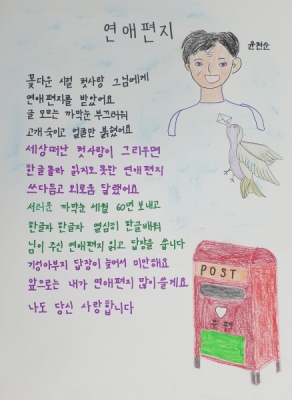 연애편지
윤현순
꽃다운 시절 첫사랑 그님에게
연애편지를 받았어요
글 모르는 까막눈 부끄러워
고개 숙이고 얼굴만 붉혔어요
세상떠난 첫사랑이 그리우면
한글몰라 읽지도못한 연애편지
쓰다듬고 외로움 달랬어요
서러운 까막눈 세월 60면 보내고
한글자 한글자 열심히 한글배워
님이 주신 연애편지 읽고 답장을 씁니다
기성아부지 답장이 늦어서 미안해요
앞으로는 내가 연애편지 많이 쓸게요
나도 당신 사랑합니다
POST
우편